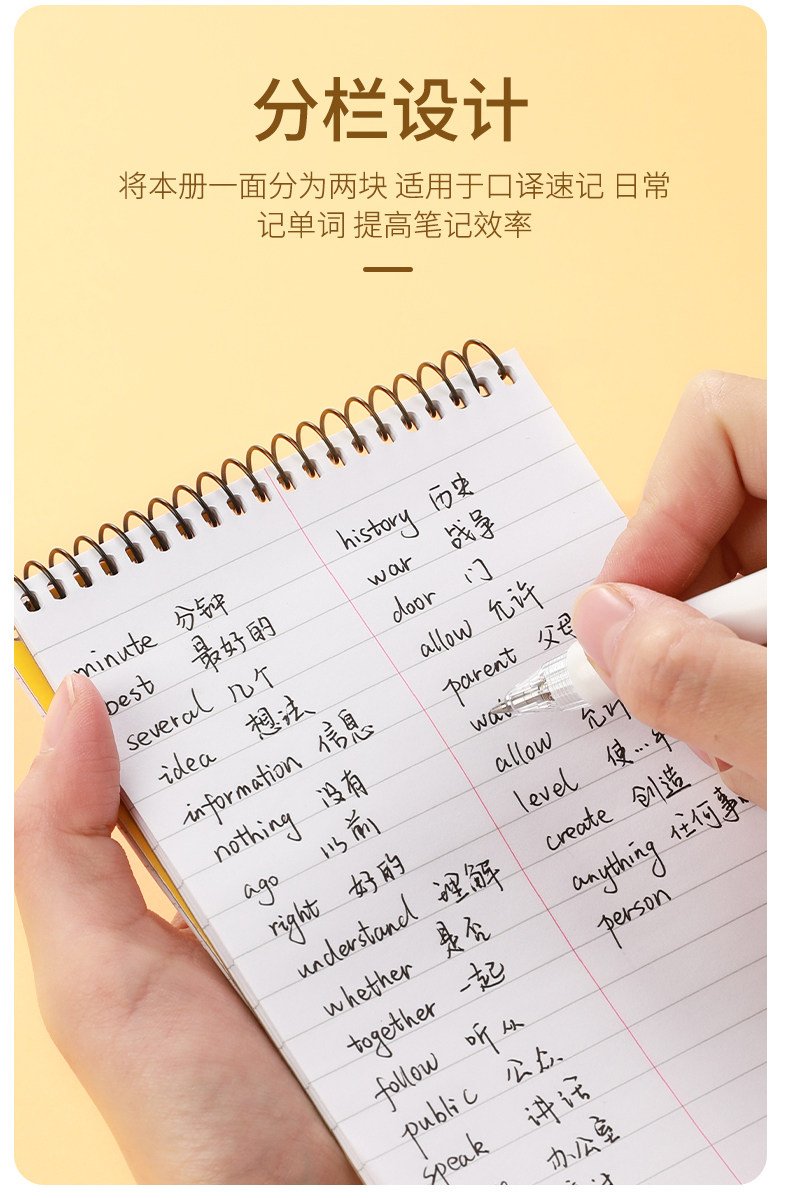 分栏设计
将本册一面分为两块 适用于口译速记 日常
记单词 提高笔记效率
minute 分钟
best 最好的
several 几个
idea 想法
information 信息
nothing 没有
ago 以前
right 好的
understand 理解
whether 是否
together 一起
follow 听从
public 公众
speak 讲话
办公室
history 历史
war 战争
door 门
allow 允许
parent 父母
allow 允许
level 使...
create 创造
anything 任何事
person